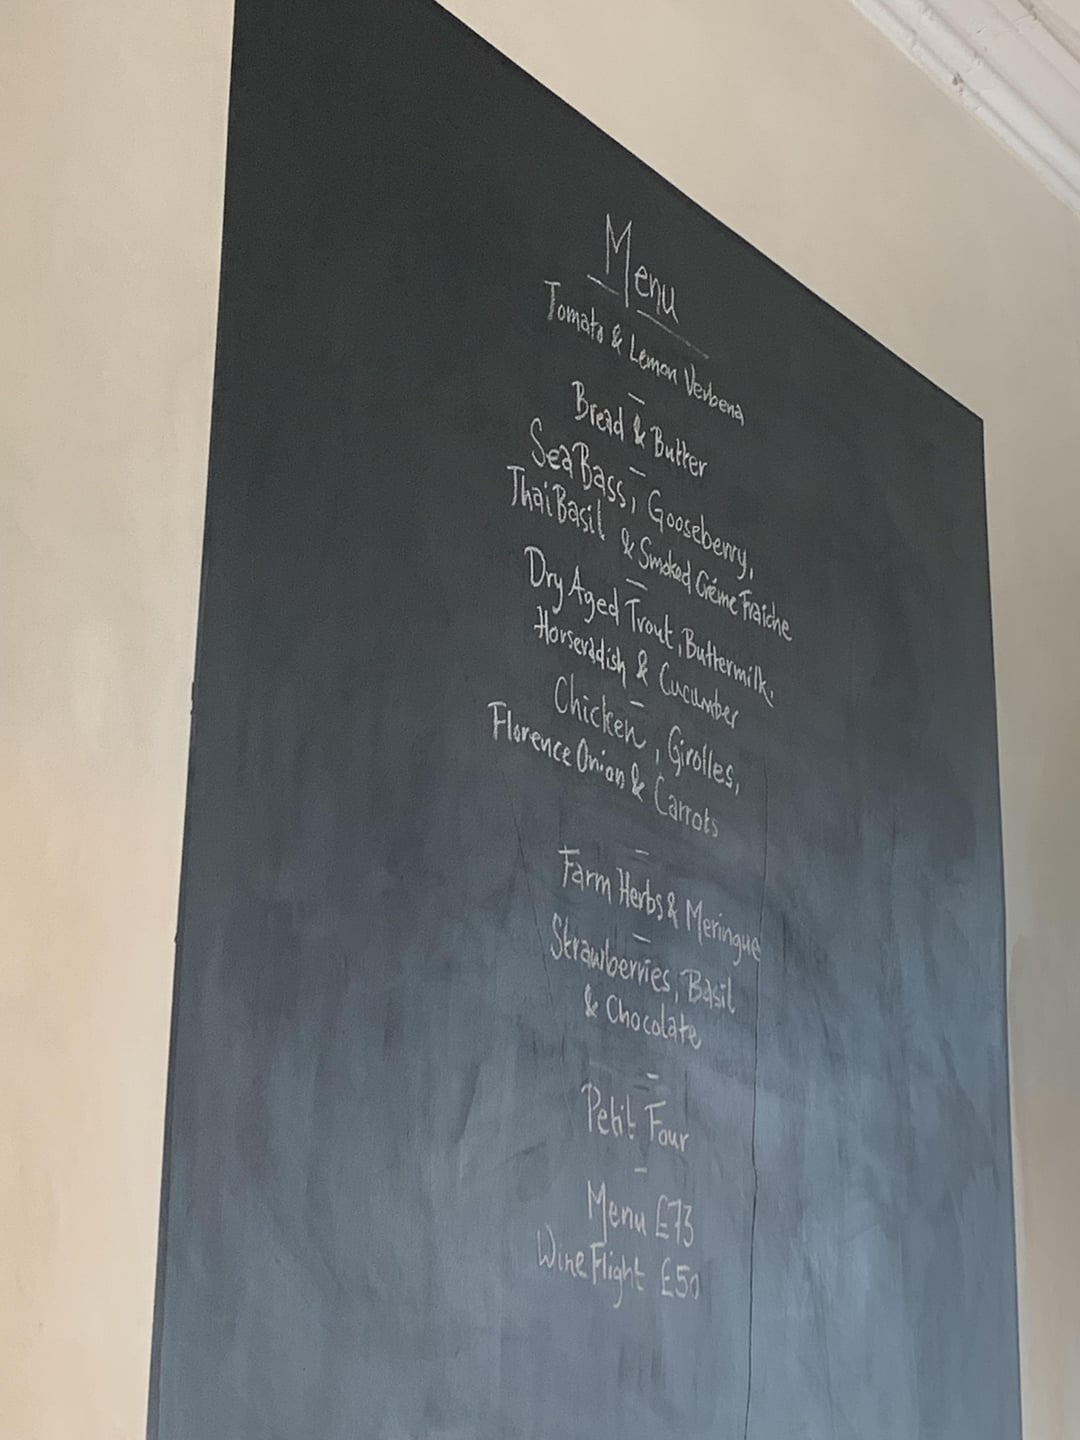 Menu
Tomato & Lemon Verbena
–
Bread & Butter
–
Sea Bass, Gooseberry,
Thai Basil & Smoked Créme Fraiche
–
Dry Aged Trout, Buttermilk,
Horseradish & Cucumber
–
Chicken, Girolles,
Florence Onion & Carrots
–
Farm Herbs & Meringue
–
Strawberries, Basil
& Chocolate
–
Petit Four
–
Menu £73
Wine Flight £50